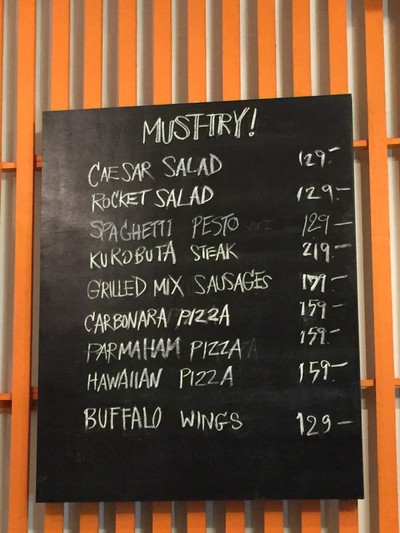 MUST-TRY!
CAESAR SALAD 129.-
ROCKET SALAD 129.-
SPAGHETTI PESTO 129-
KUROBUTA STEAK 219.-
GRILLED MIX SAUSAGES 159.-
CARBONARA PIZZA 159.-
PARMAHAM PIZZA 159.-
HAWAIIAN PIZZA 159.-
BUFFALO WINGS 129-